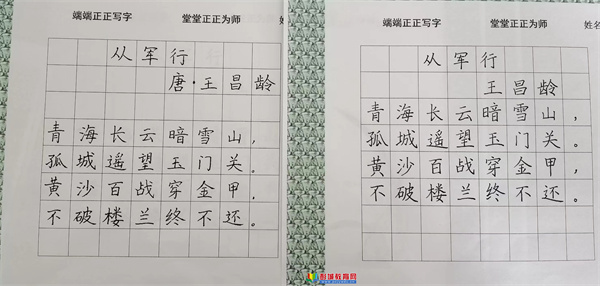 端端正正写字 堂堂正正为师
从军行
唐·王昌龄
青海长云暗雪山，
孤城遥望玉门关。
黄沙百战穿金甲，
不破楼兰终不还。
端端正正写字 堂堂正正为师 姓名
从军行
王昌龄
青海长云暗雪山，
孤城遥望玉门关。
黄沙百战穿金甲，
不破楼兰终不还。
彭城教育网